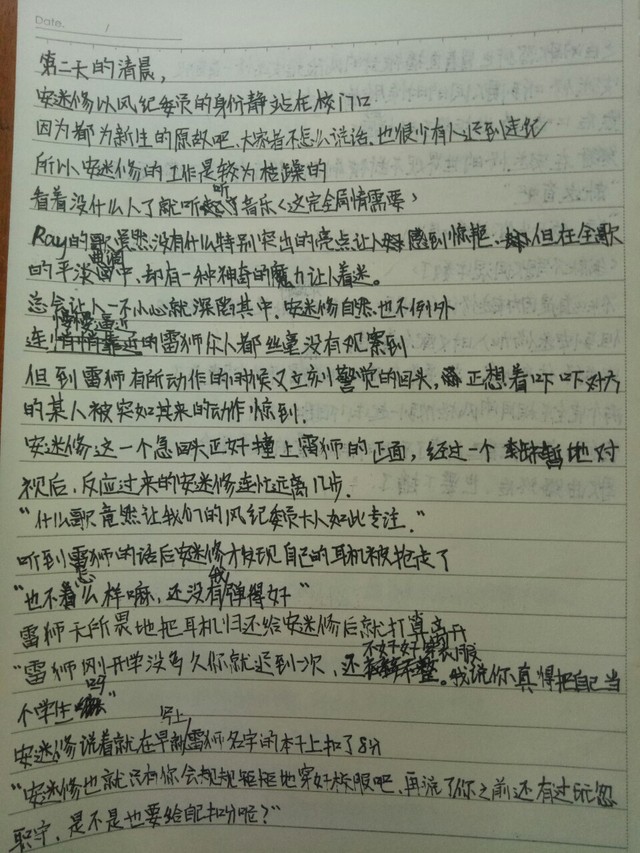 Date.      /
第二天的清晨，
安迷修以风纪委员的身份静站在校门口
因为都为新生的原故吧、大家都不怎么说话、也很少有人迟到违纪
所以安迷修的工作是较为枯躁的
看着没什么人了就听听音乐〈这完全剧情需要〉
Ray的歌虽然没有什么特别突出的亮点让人感到惊艳、但在全歌
的平淡曲调中、却有一种神奇的魔力让人着迷。
总会让人一不小心就深陷其中，安迷修自然也不例外
连慢慢逼近的雷狮众人都丝毫没有观察到
但到雷狮有所动作的时候又立刻警觉的回头，正想着吓一吓对方
的某人被突如其来的动作惊到.
安迷修这一个急回头正好撞上雷狮的正面，经过一个短暂地对
视后，反应过来的安迷修连忙远离几步.
“什么歌竟然让我们的风纪委员大人如此专注.”
听到雷狮的话后安迷修才发现自己的耳机被抢走了
“也不怎么样嘛，还没有我弹得好”
雷狮无所畏地把耳机归还给安迷修后就打算离开
“雷狮刚开学没多久你就迟到一次，还不好好穿衣服。我说你真得把自己当
个学生吗”
安迷修说着就在早就写上雷狮名字的本子上扣了8分
“安迷修也就只有你会规规矩矩地穿好校服吧，再说了你之前还有过玩忽
职守，是不是也要给自己扣分呢？”